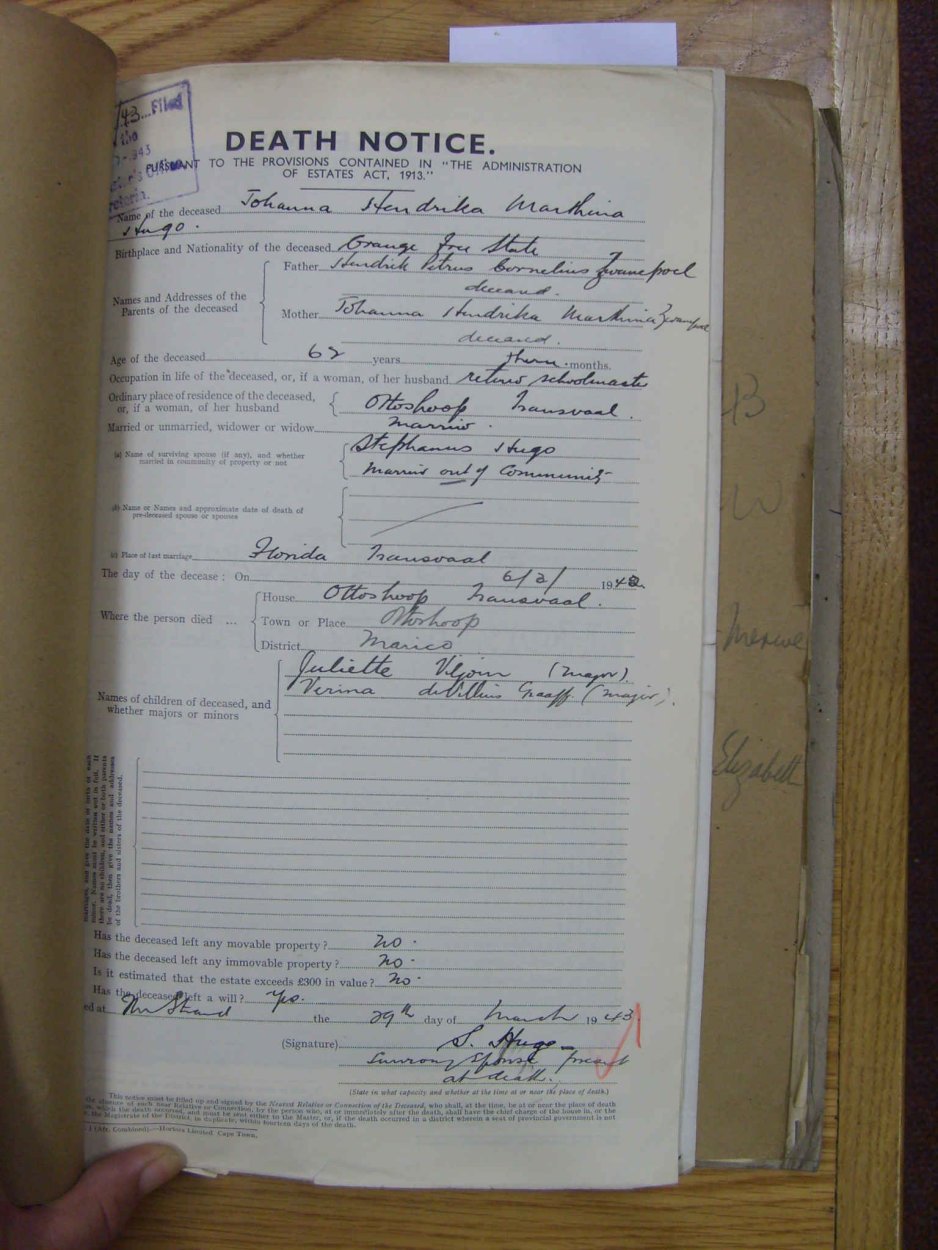 43...Filed
the
1943
PURSUANT TO THE PROVISIONS CONTAINED IN "THE ADMINISTRATION
OF ESTATES ACT, 1913."
DEATH NOTICE.
Name of the deceased Johanna Hendrika Marthina
Hugo.
Birthplace and Nationality of the deceased Orange Free State
Names and Addresses of the Parents of the deceased
Father Hendrik Petrus Cornelius Zwanepoel
deceased.
Mother Johanna Hendrika Marthina Zwanepoel
deceased.
Age of the deceased 62 years three months.
Occupation in life of the deceased, or, if a woman, of her husband retired schoolmaster
Ordinary place of residence of the deceased,
or, if a woman, of her husband Ottoshoop Transvaal.
Married or unmarried, widower or widow married.
(a) Name of surviving spouse (if any), and whether Stephanus Hugo
married in community of property or not Married out of Community
(b) Name or Names and approximate date of death of
pre-deceased spouse or spouses
(c) Place of last marriage Florida Transvaal
The day of the decease: On 6/3/ 194
Where the person died ...
House Ottoshoop Transvaal.
Town or Place Ottoshoop
District Marico
Names of children of deceased, and
whether majors or minors
Juliette Viljoen (major)
Verina deVillies Graaff. (major).
marriages, and give the date of birth of each
minor. Names must be written out in full. If
there are no children, and either or both parents
be dead, then give the names and addresses
of the brothers and sisters of the deceased.
Has the deceased left any movable property? no.
Has the deceased left any immovable property? no.
Is it estimated that the estate exceeds £300 in value? no.
Has the deceased left a will? yes.
ed at The Strand the 29th day of March 1943
(Signature) S. Hugo
Surviving Spouse present
at death.
(State in what capacity and whether at the time at or near the place of death.)
This notice must be filled up and signed by the Nearest Relative or Connection of the Deceased, who shall, at the time, be at or near the place of death
the absence of such near Relative or Connection, by the person who, at or immediately after the death, shall have the chief charge of the house in, or the
which the death occurred, and must be sent either to the Master, or, if the death occurred in a district wherein a seat of provincial government is not
the Magistrate of the District, in duplicate, within fourteen days of the death.
(Aft. Combined).—Hortors Limited Cape Town.
B
W
Merwe
Elizabeth